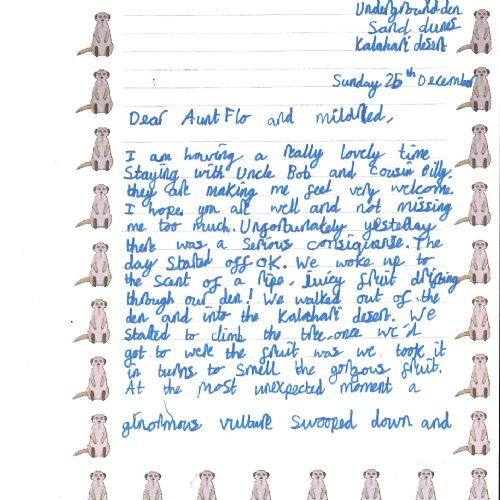 Underground den
Sand dunes
Kalahari desert
Sunday 25th December
Dear Aunt Flo and mildred,
I am having a really lovely time
Staying with Uncle Bob and cousin Billy.
they are making me feel very welcome.
I hope you are well and not missing
me too much. Unfortunately yesterday
there was a serious consiquense. The
day started off OK. We woke up to
the scent of a ripe, juicy fruit drifting
through our den! We walked out of the
den and into the Kalahari desert. We
started to climb the tree once we'd
got to were the fruit was we took it
in turns to smell the gorgous fruit.
At the most unexpected moment a
ginormous vulture swooped down and